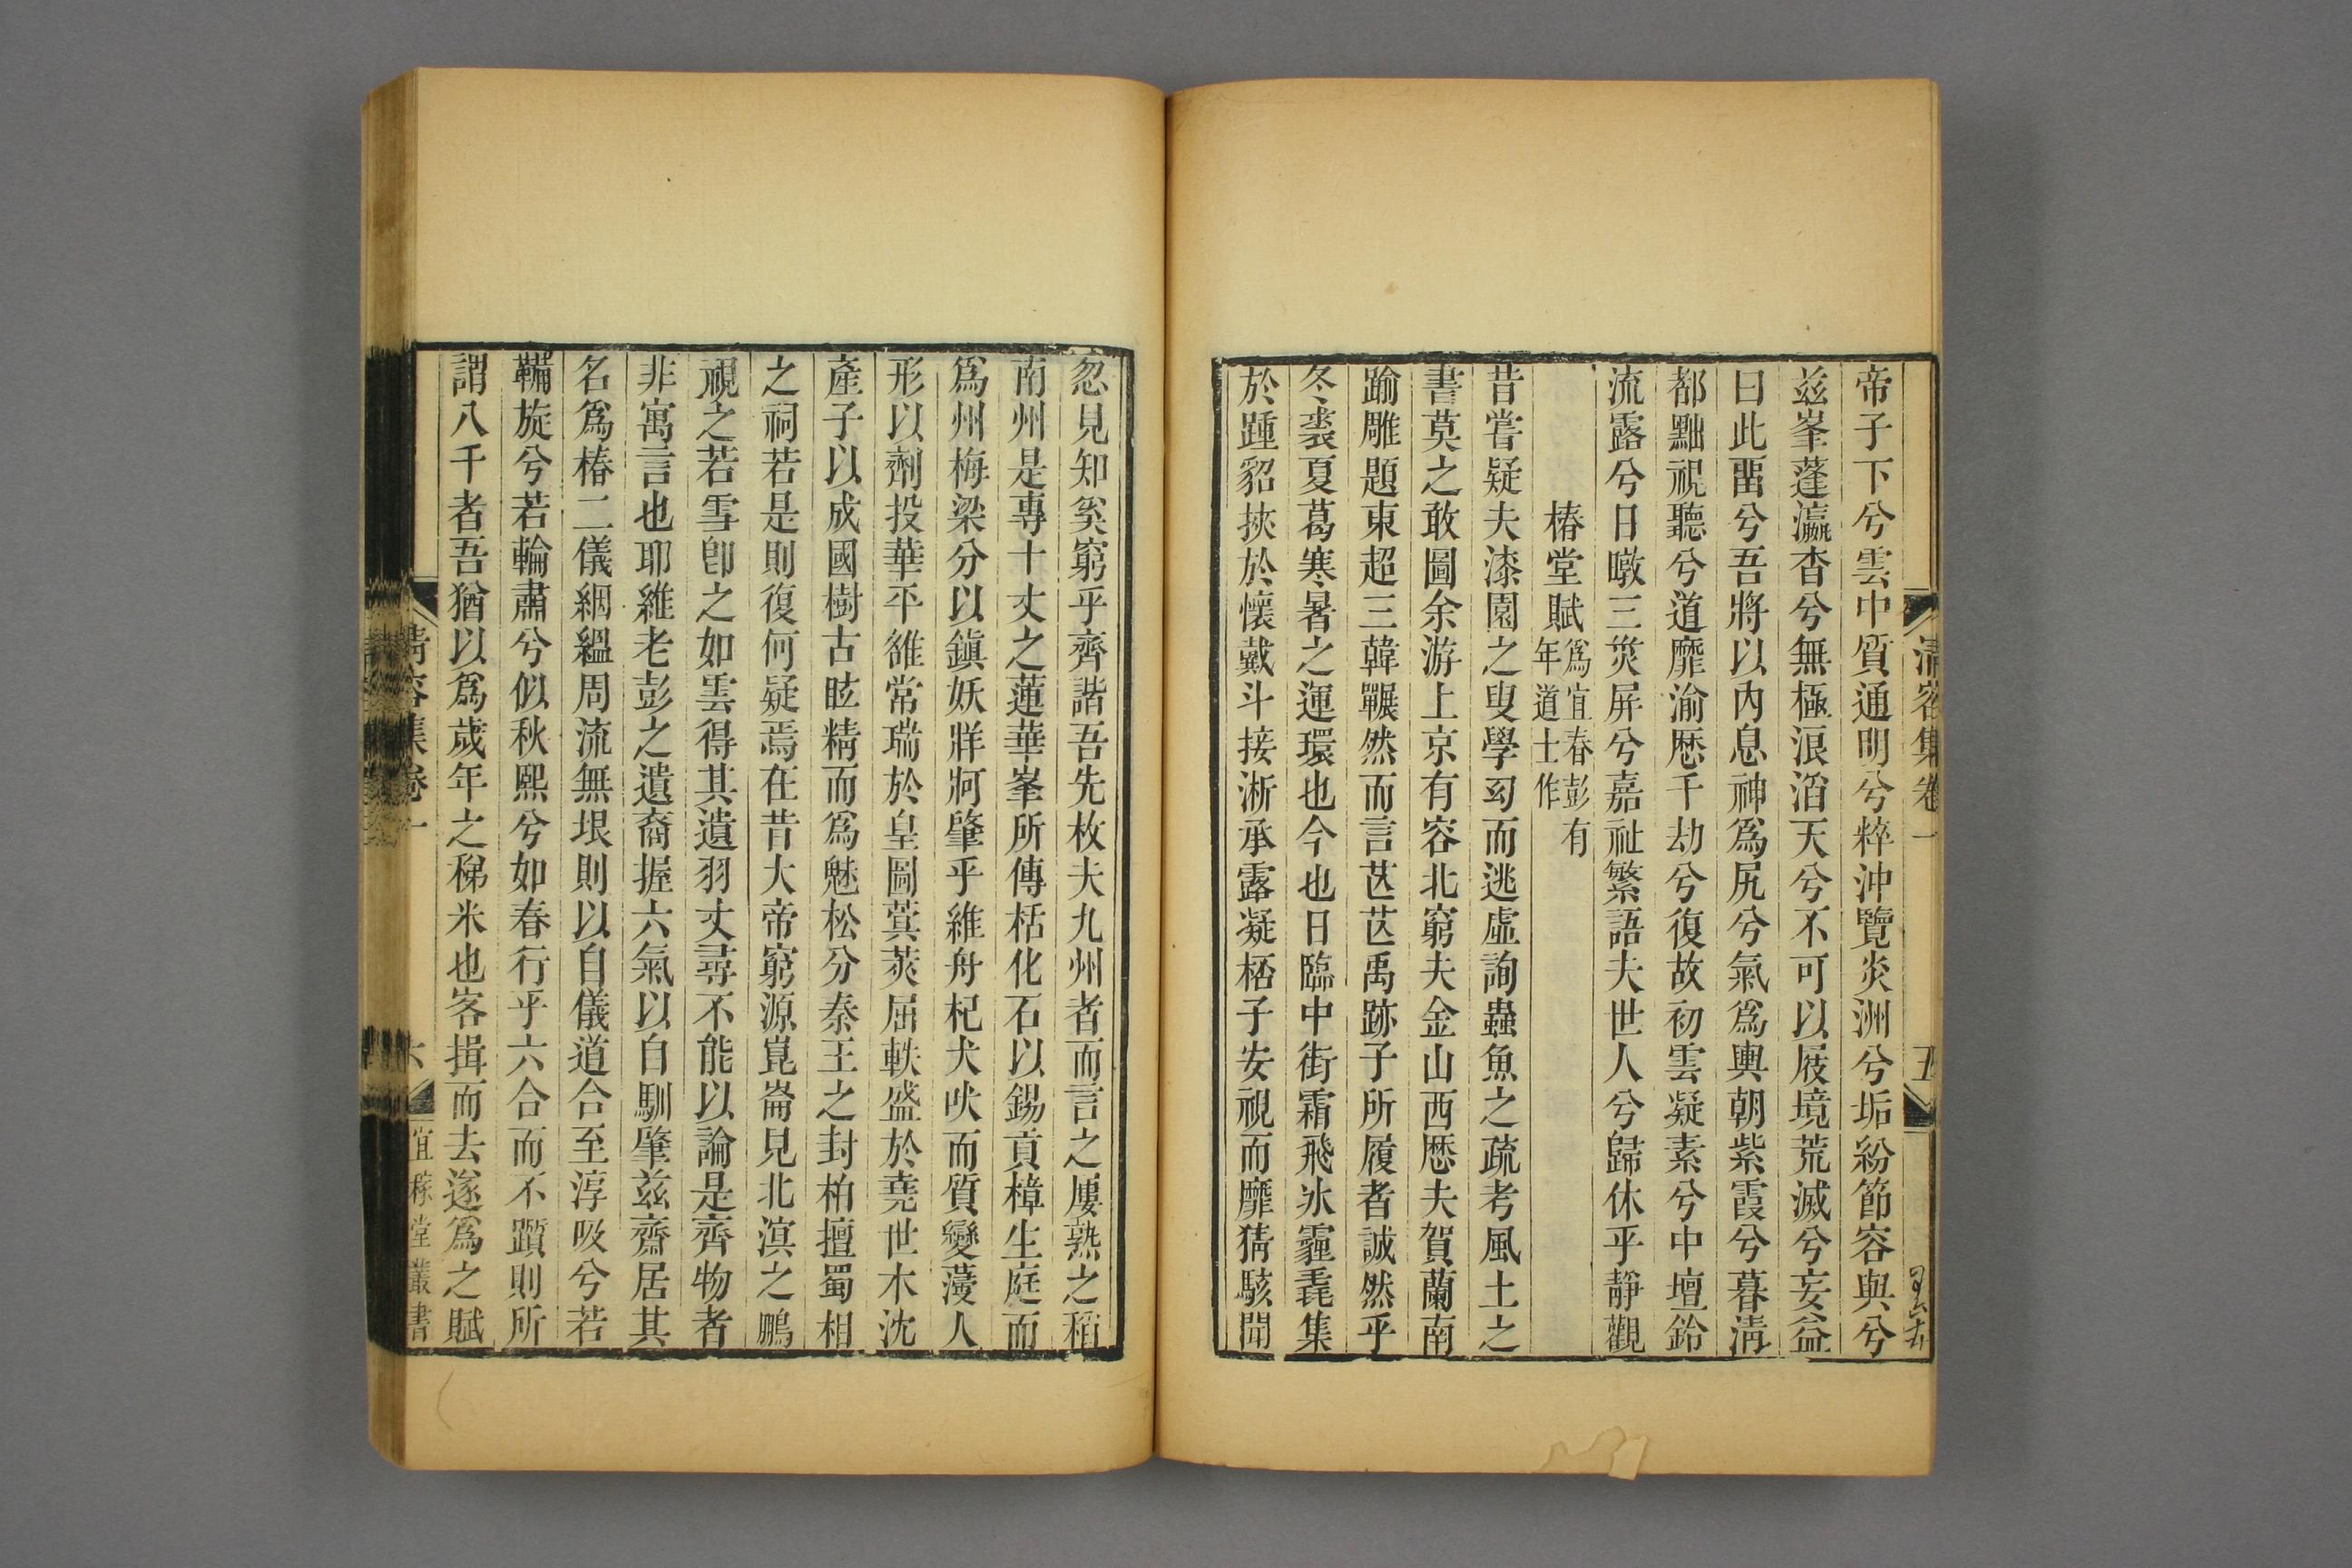 清容集卷一 五
帝子下兮雲中質通明兮粹沖覽炎洲兮垢紛節容與兮
兹峯蓬瀛杳兮無極浪滔天兮不可以屐境荒滅兮妄益
曰此畱兮吾將以內息神爲尻兮氣爲輿朝紫霞兮暮淸
都黜視聽兮道靡渝歷千劫兮復故初雲凝素兮中壇鈴
流露兮日暾三災屏兮嘉祉繁語夫世人兮歸休乎靜觀
椿堂賦爲宜春彭有年道士作
昔嘗疑夫漆園之叟學幻而逃虛詢蟲魚之疏考風土之
書莫之敢圖余游上京有容北窮夫金山西歷夫賀蘭南
踰雕題東超三韓囅然而言苙苙禹跡子所履者誠然乎
冬裘夏葛寒暑之運環也今也日臨中街霜飛冰霾毳集
於踵貂挾於懷戴斗接淅承露凝桮子安視而靡猜駭聞
忽見知奚窮乎齊諧吾先枚夫九州者而言之屢熟之稻
南州是專十丈之蓮華峯所傳栝化石以錫貢樟生庭而
爲州梅梁分以鎭妖牂牁肇乎維舟杞犬吠而質變蔓人
形以劑投華平雒常瑞於皇圖蓂莢屈軼盛於堯世木沈
產子以成國樹古眩精而爲魅松分秦王之封柏擅蜀相
之祠若是則復何疑焉在昔大帝窮源崑崙見北溟之鵬
視之若雪卽之如雲得其遺羽丈尋不能以論是齊物者
非寓言也耶維老彭之遺裔握六氣以白馴肇兹齋居其
名爲椿二儀絪縕周流無垠則以自儀道合至淳吸兮若
鞴旋兮若輪肅兮似秋熙兮如春行乎六合而不躓則所
謂八千者吾猶以爲歲年之稊米也客揖而去遂爲之賦
清容集卷一 六 宜稼堂叢書